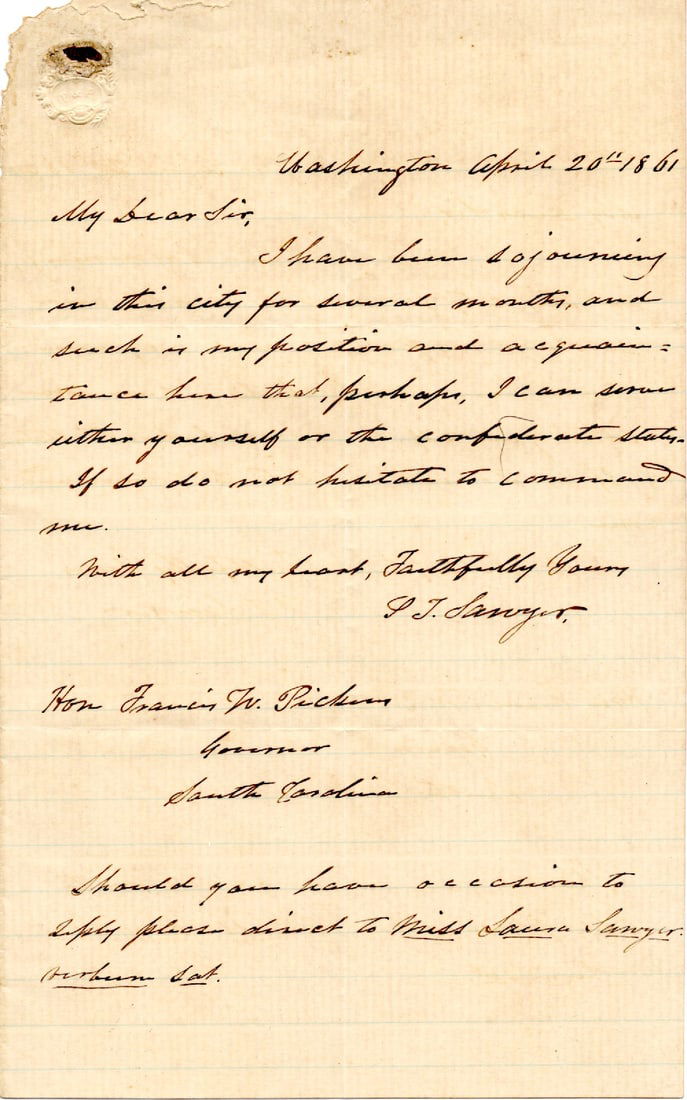 Washington April 20" 1861
My Dear Sir,
I have been sojourning
in this city for several months, and
such is my position and acquain=
tance here that, perhaps, I can serve
either yourself or the confederate states.
If so do not hesitate to command
me.
With all my heart, Faithfully Yours
S T. Sawyer.
Hon Francis W. Pickens
Governor
South Carolina
Should you have occasion to
reply please direct to Miss Laura Sawyer.
verbum sat.